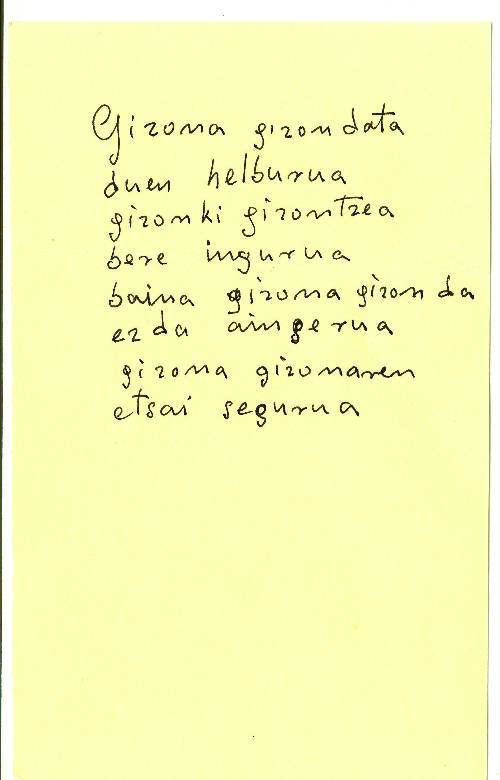 Gizona gizon data
duen helburua
gizonki gizontzea
bere ingurua
baina gizona gizon da
ez da aingerua
gizona gizonaren
etsai segurua